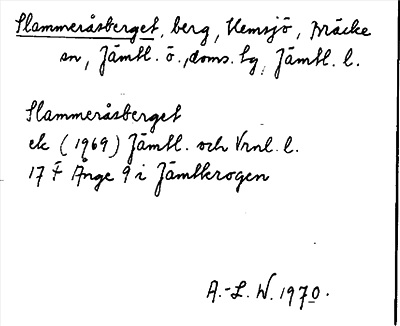 Slammeråsberget, berg, Hemsjö, Bräcke
sn, Jämtl. ö., doms. lg, Jämtl. l.
Slammeråsberget
ek (1969) Jämtl. och Vrnl. l.
17 F Ånge 9 i Jämtkrogen
A.-L. W. 1970.